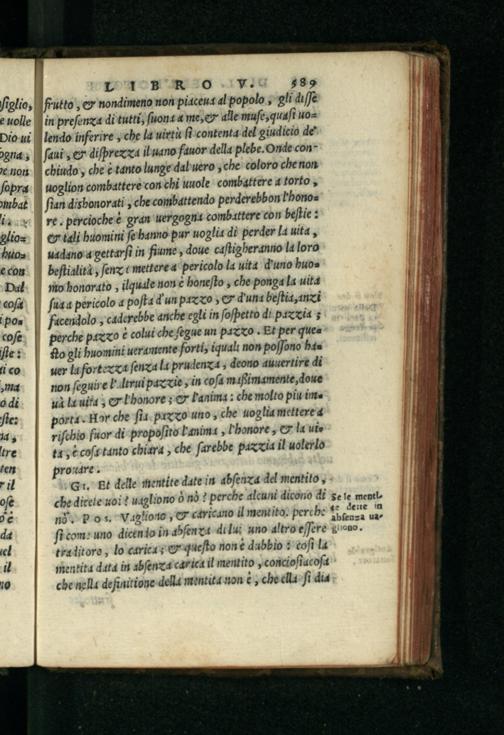 LIBRO V. 589
frutto, & nondimeno non piaceua al popolo, gli disse
in presenza di tutti, suona a me, & alle muse, quasi uo=
lendo inferire, che la uirtù si contenta del giudicio de'
saui, & disprezza il uano fauor della plebe. Onde con=
chiudo, che è tanto lunge dal uero, che coloro che non
uoglion combattere con chi uuole combattere a torto,
sian dishonorati, che combattendo perderebbon l'hono=
re. percioche è gran uergogna combattere con bestie:
& tali huomini se hanno pur uoglia di perder la uita,
uadano a gettarsi in fiume, doue castigheranno la loro
bestialità, senza mettere a pericolo la uita d'uno huo=
mo honorato, ilquale non è honesto, che ponga la uita
sua a pericolo a posta d'un pazzo, & d'una bestia, anzi
facendolo, caderebbe anche egli in sospetto di pazzia;
perche pazzo è colui che segue un pazzo. Et per que=
sto gli huomini ueramente forti, iquali non possono ha=
uer la fortezza senza la prudenza, deono auuertire di
non seguire l'altrui pazzie, in cosa maßimamente, doue
uà la uita, & l'honore; & l'anima: che molto piu im=
porta. Hor che sia pazzo uno, che uoglia mettere a
rischio fuor di proposito l'anima, l'honore, & la ui=
ta, è cosa tanto chiara, che sarebbe pazzia il uolerlo
prouare.
GI. Et delle mentite date in absenza del mentito,
che dicete uoi? uagliono ò nò? perche alcuni dicono di
nò. POS. Vagliono, & caricano il mentito. perche
si come uno dicendo in absenza di lui, uno altro essere
traditore, lo carica; & questo non è dubbio: così la
mentita data in absenza carica il mentito, conciosiacosa
che nella definitione della mentita non è, che ella si dia
Se le menti-
te dette in
absenza ua-
gliono.
siglio,
e uolle
Dio ui
ogna,
be non
sopra
ombat
li.
huo=
e con
Dal
cosa
i po=
cose
ti co
,ma
o di
ltre
ten
& il
ose
da
uel
il
no